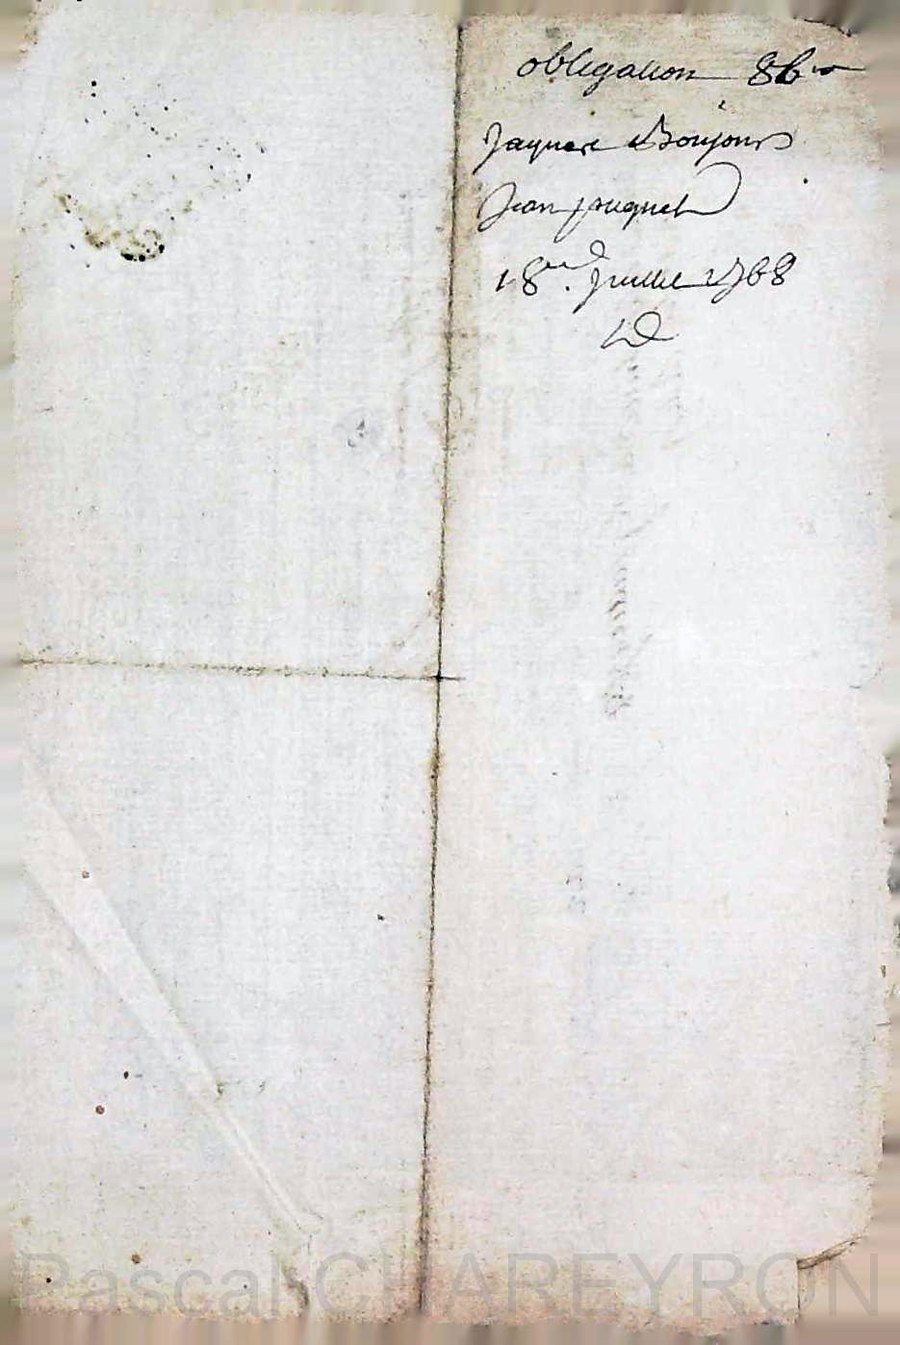 obligation 86#
Jaques Bonjour
Jean huguet
18me Juillet 1768
Pascal CHAREYRON